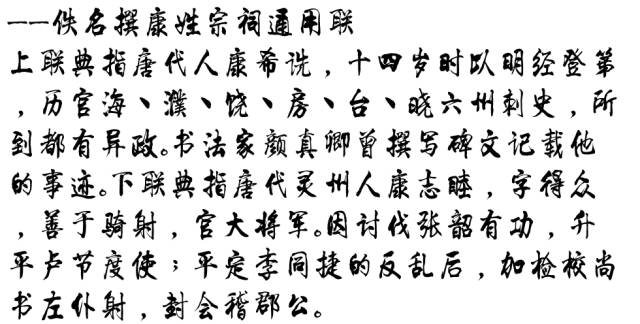 ——佚名撰康姓宗祠通用联
上联典指唐代人康希诜，十四岁时以明经登第
，历官海、濮、饶、房、台、晓六州刺史，所
到都有异政。书法家颜真卿曾撰写碑文记载他
的事迹。下联典指唐代灵州人康志睦，字得众
，善于骑射，官大将军。因讨伐张韶有功，升
平卢节度使；平定李同捷的反乱后，加检校尚
书左仆射，封会稽郡公。